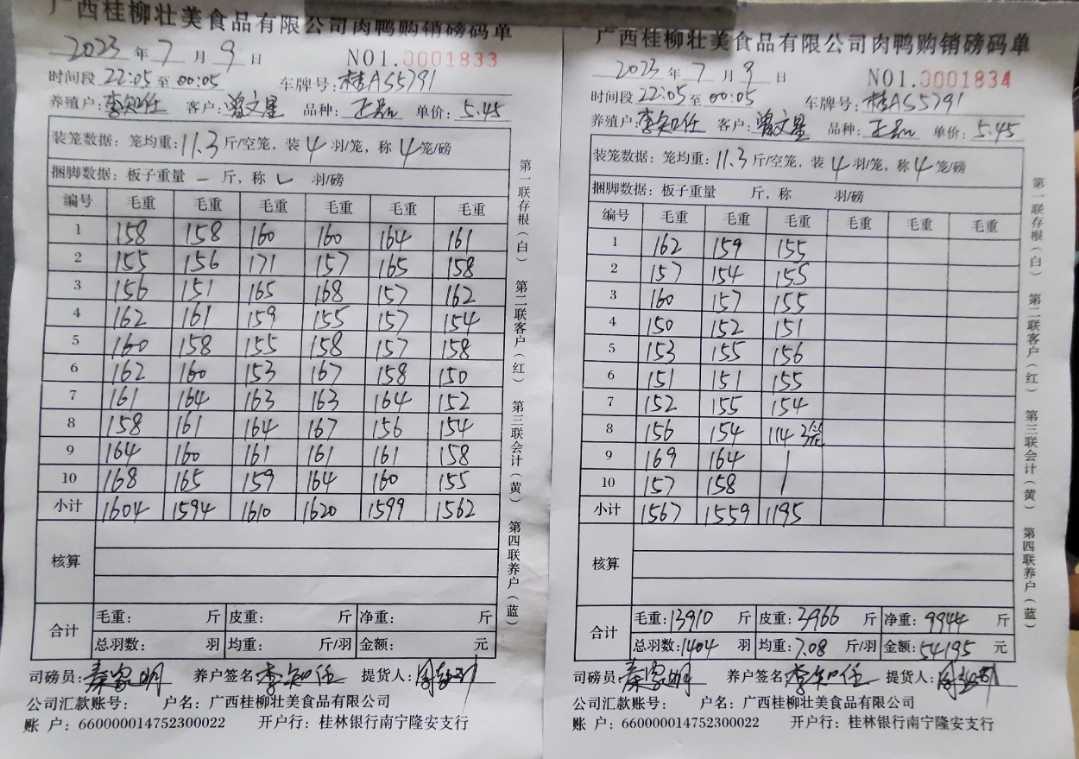 广西桂柳壮美食品有限公司肉鸭购销磅码单
2023 年 7 月 9 日 NO1.0001833
时间段 22:05 至 00:05 车牌号: 桂AS5791
养殖户: 李知任 客户: 曾文星 品种: 正品 单价: 5.45
装笼数据: 笼均重: 11.3 斤/空笼, 装 4 羽/笼, 称 4 笼/磅
捆脚数据: 板子重量 一 斤, 称 羽/磅
编号 毛重 毛重 毛重 毛重 毛重 毛重
1 158 158 160 160 164 161
2 155 156 171 157 165 158
3 156 151 165 168 157 162
4 162 161 159 155 157 154
5 160 158 155 158 157 158
6 162 160 153 167 158 150
7 161 164 163 163 164 152
8 158 161 164 167 156 154
9 164 160 161 161 161 158
10 168 165 159 164 160 155
小计 1604 1594 1610 1620 1599 1562
核算
合计
毛重: 斤 皮重: 斤 净重: 斤
总羽数: 羽 均重: 斤/羽 金额: 元
司磅员: 秦家明 养户签名 李知任 提货人:
公司汇款账号: 户名: 广西桂柳壮美食品有限公司
账 户: 660000014752300022 开户行: 桂林银行南宁隆安支行
第一联存根(白) 第二联客户(红) 第三联会计(黄) 第四联养户(蓝)
广西桂柳壮美食品有限公司肉鸭购销磅码单
2023 年 7 月 9 日 NO1.0001834
时间段 22:05 至 00:05 车牌号: 桂AS5791
养殖户: 李知任 客户: 曾文星 品种: 正品 单价: 5.45
装笼数据: 笼均重: 11.3 斤/空笼, 装 4 羽/笼, 称 4 笼/磅
捆脚数据: 板子重量 斤, 称 羽/磅
编号 毛重 毛重 毛重 毛重 毛重 毛重
1 162 159 155
2 157 154 155
3 160 157 155
4 150 152 151
5 153 155 156
6 151 151 155
7 152 155 154
8 156 154 114 3笼
9 169 164 /
10 157 158 /
小计 1567 1559 1195
核算
合计
毛重: 13910 斤 皮重: 3966 斤 净重: 9944 斤
总羽数: 1404 羽 均重: 7.08 斤/羽 金额: 54195 元
司磅员: 秦家明 养户签名 李知任 提货人:
公司汇款账号: 户名: 广西桂柳壮美食品有限公司
账 户: 660000014752300022 开户行: 桂林银行南宁隆安支行
第一联存根(白) 第二联客户(红) 第三联会计(黄) 第四联养户(蓝)